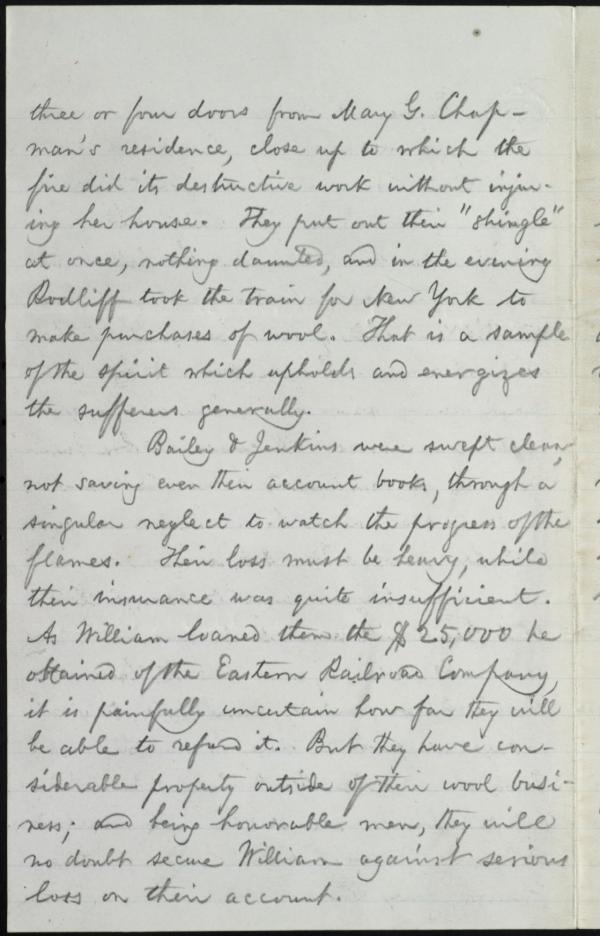 three or four doors from Mary G. Chap-
man's residence, close up to which the
fire did its destructive work without injur-
ing her house. They put out their "shingle"
at once, nothing daunted, and in the evening
Rodliff took the train for New York to
make purchases of wool. That is a sample
of the spirit which upholds and energizes
the sufferers generally.
Bailey & Jenkins were swept clean,
not saving even their account books, through a
singular neglect to watch the progress of the
flames. Their loss must be heavy, while
their insurance was quite insufficient.
As William loaned them the $25,000 he
obtained of the Eastern Railroad Company,
it is painfully uncertain how far they will
be able to refund it. But they have con-
siderable property outside of their wool busi-
ness; and being honorable men, they will
no doubt secure William against serious
loss on their account.